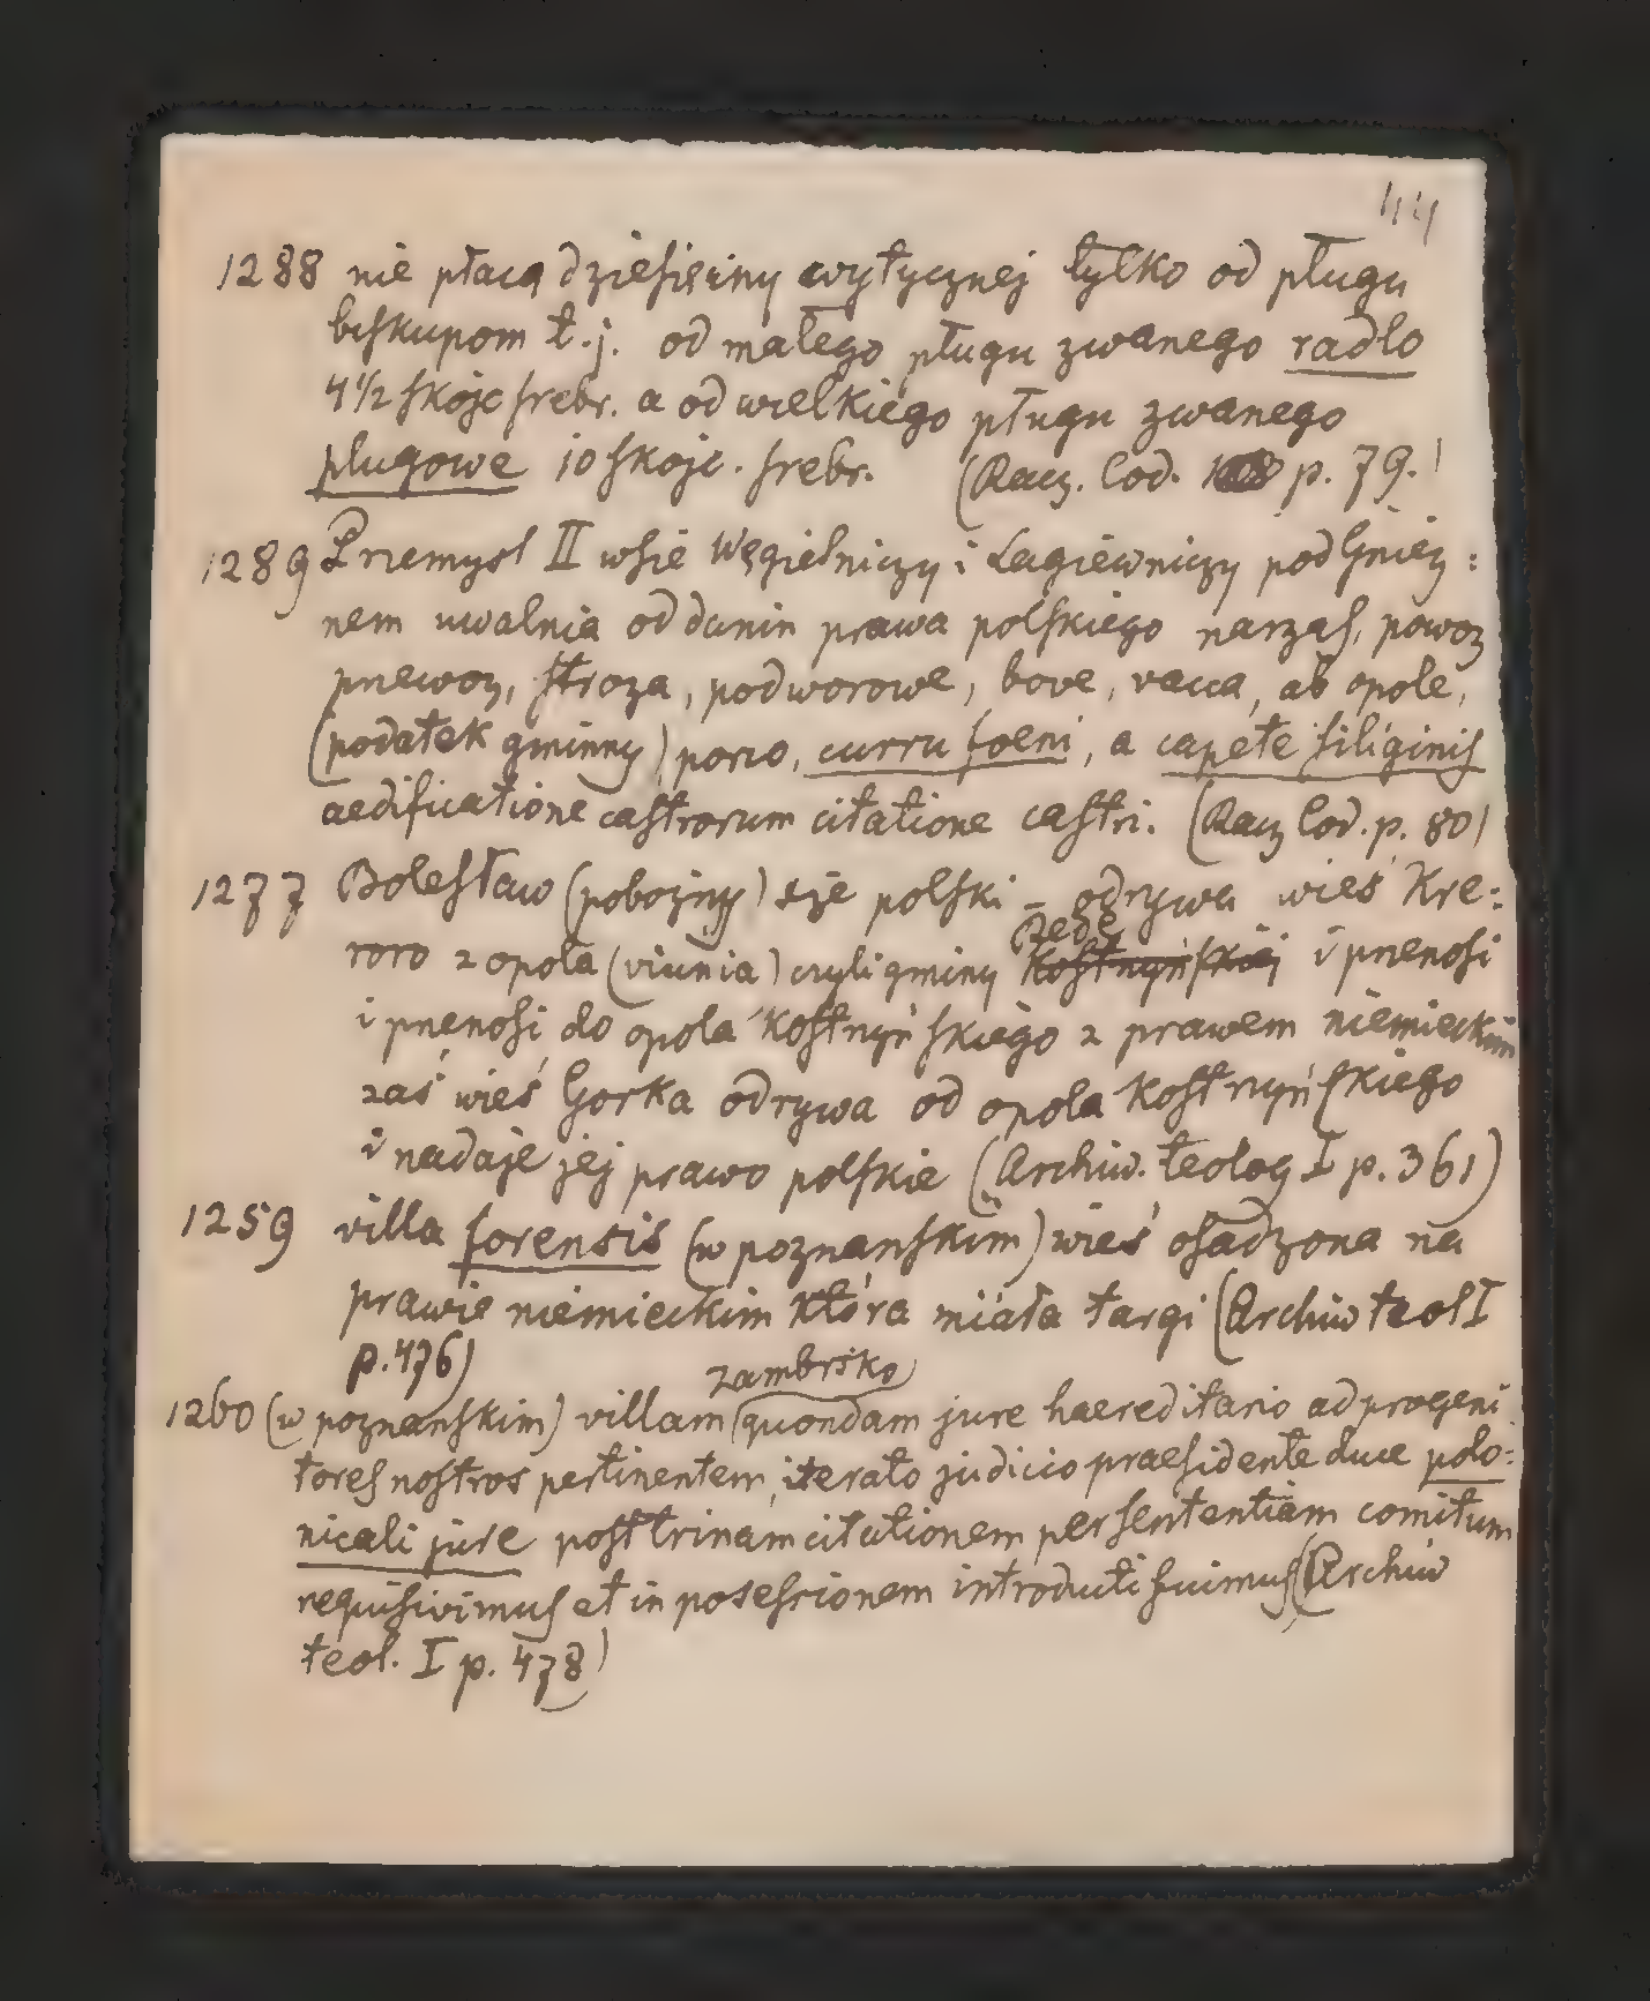 44
1288 nie płacą dziesięciny wytycznej tylko od pługu
biskupom t.j. od małego pługu zwanego radlo
4 1/2 skojc srebr. a od wielkiego pługu zwanego
plugowe 10 skojc. srebr. (Racz. Cod. p. 79.)
1289 Przemysl II wsie Węgielniczy i Łagiewniczy pod Gniez:
nem uwalnia od danin prawa polskiego narzas, powoz
przewoz, stroza, podworowe, bove, vacca, ab opole,
(podatek gminny) porco, curru foeni, a capete siliginis
aedificatione castrorum citatione castri. (Racz Cod. p. 80)
1277 Bolesław (pobożny) xże polski – odrywa wieś Kre:
roro z opola (vicinia) czyli gminy Kostrzyńskiej i przenosi
i przenosi do opola Kostrzyńskiego z prawem niemieckim
zaś wieś Gorka odrywa od opola Kostrzyńskiego
i nadaje jej prawo polskie (Archiw. teolog I p. 361)
1259 villa forensis (w poznanskim) wieś osadzona na
prawie niemieckim która miała targi (Archiw teol I
p. 476)
zambrsko
1260 (w poznanskim) villam (quondam jure haereditario ad progeni
tores nostros pertinentem, iterato judicio praesidente duce polo:
nicali jure post trinam citationem per sententiam comitum
requisivimus et in posessionem introducti fuimus (Archiw
teol. I p. 478)